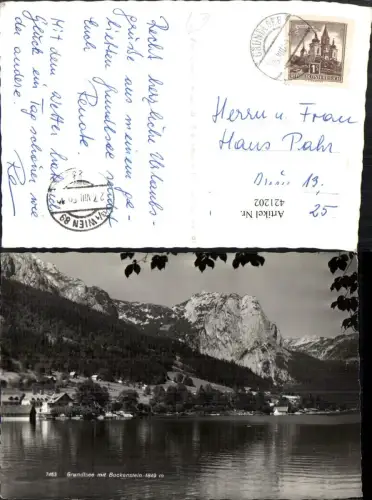 Recht herzliche Urlaubs-
grüße aus meinem ge-
liebten Grundlsee sendet
Euch Renate.
Mit dem Wetter habe ich
Glück ein Tag schöner wie
der andere.
GRUNDLSEE
REPUBLIK ÖSTERREICH
Herrn u. Frau
Hans Pahr
Wien 19.
25
Artikel Nr.
421202
WIEN 89
7463 Grundlsee mit Backenstein 1649 m